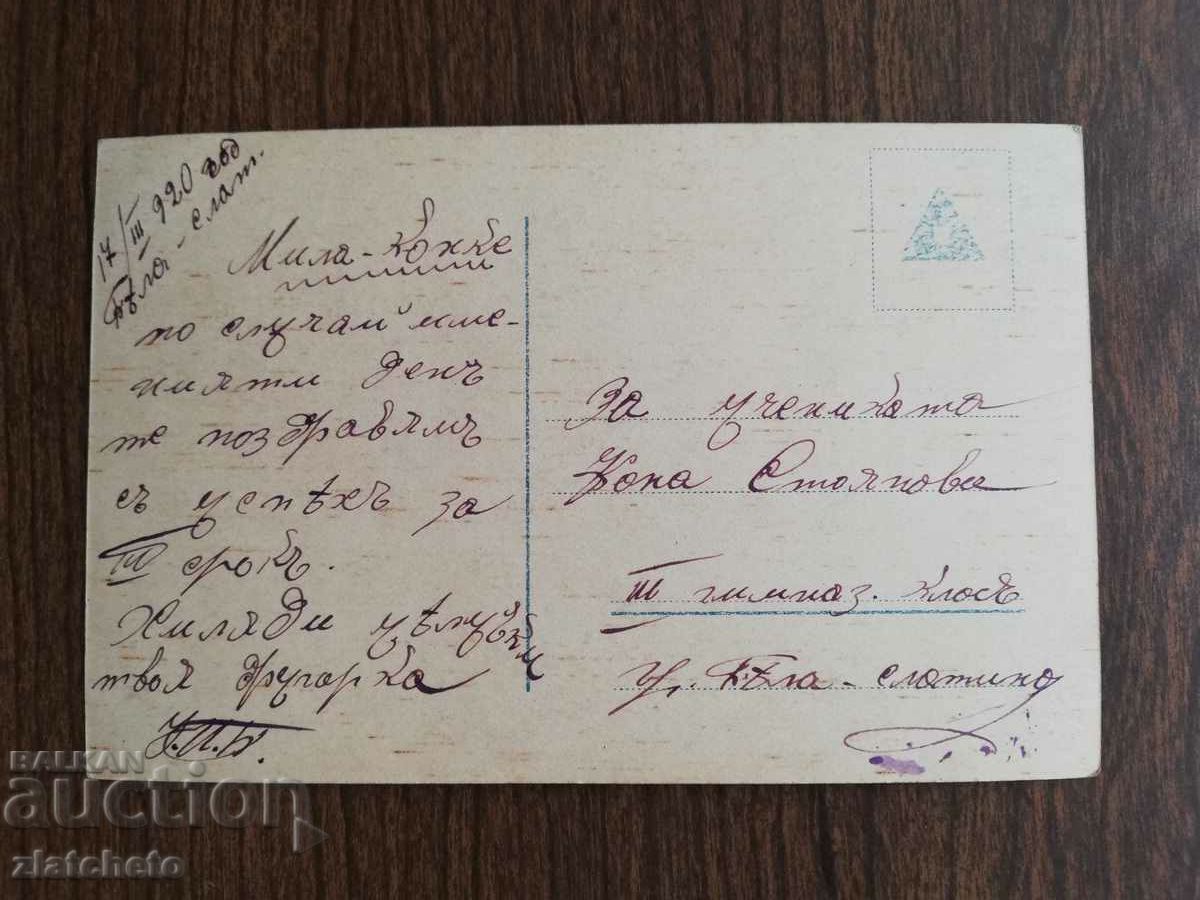 17/III 920 год
Бѣло-слат.
Мила-Конке
по случай име-
нняти денъ
те поздравямъ
съ успѣхъ за
III срокъ.
Хиляди цѣлувки
твоя другарка
За ученичката
Кона Стоянова
III гимназ. класъ
гр. Бѣла-слатина
BALKAN
auction
zlatcheto